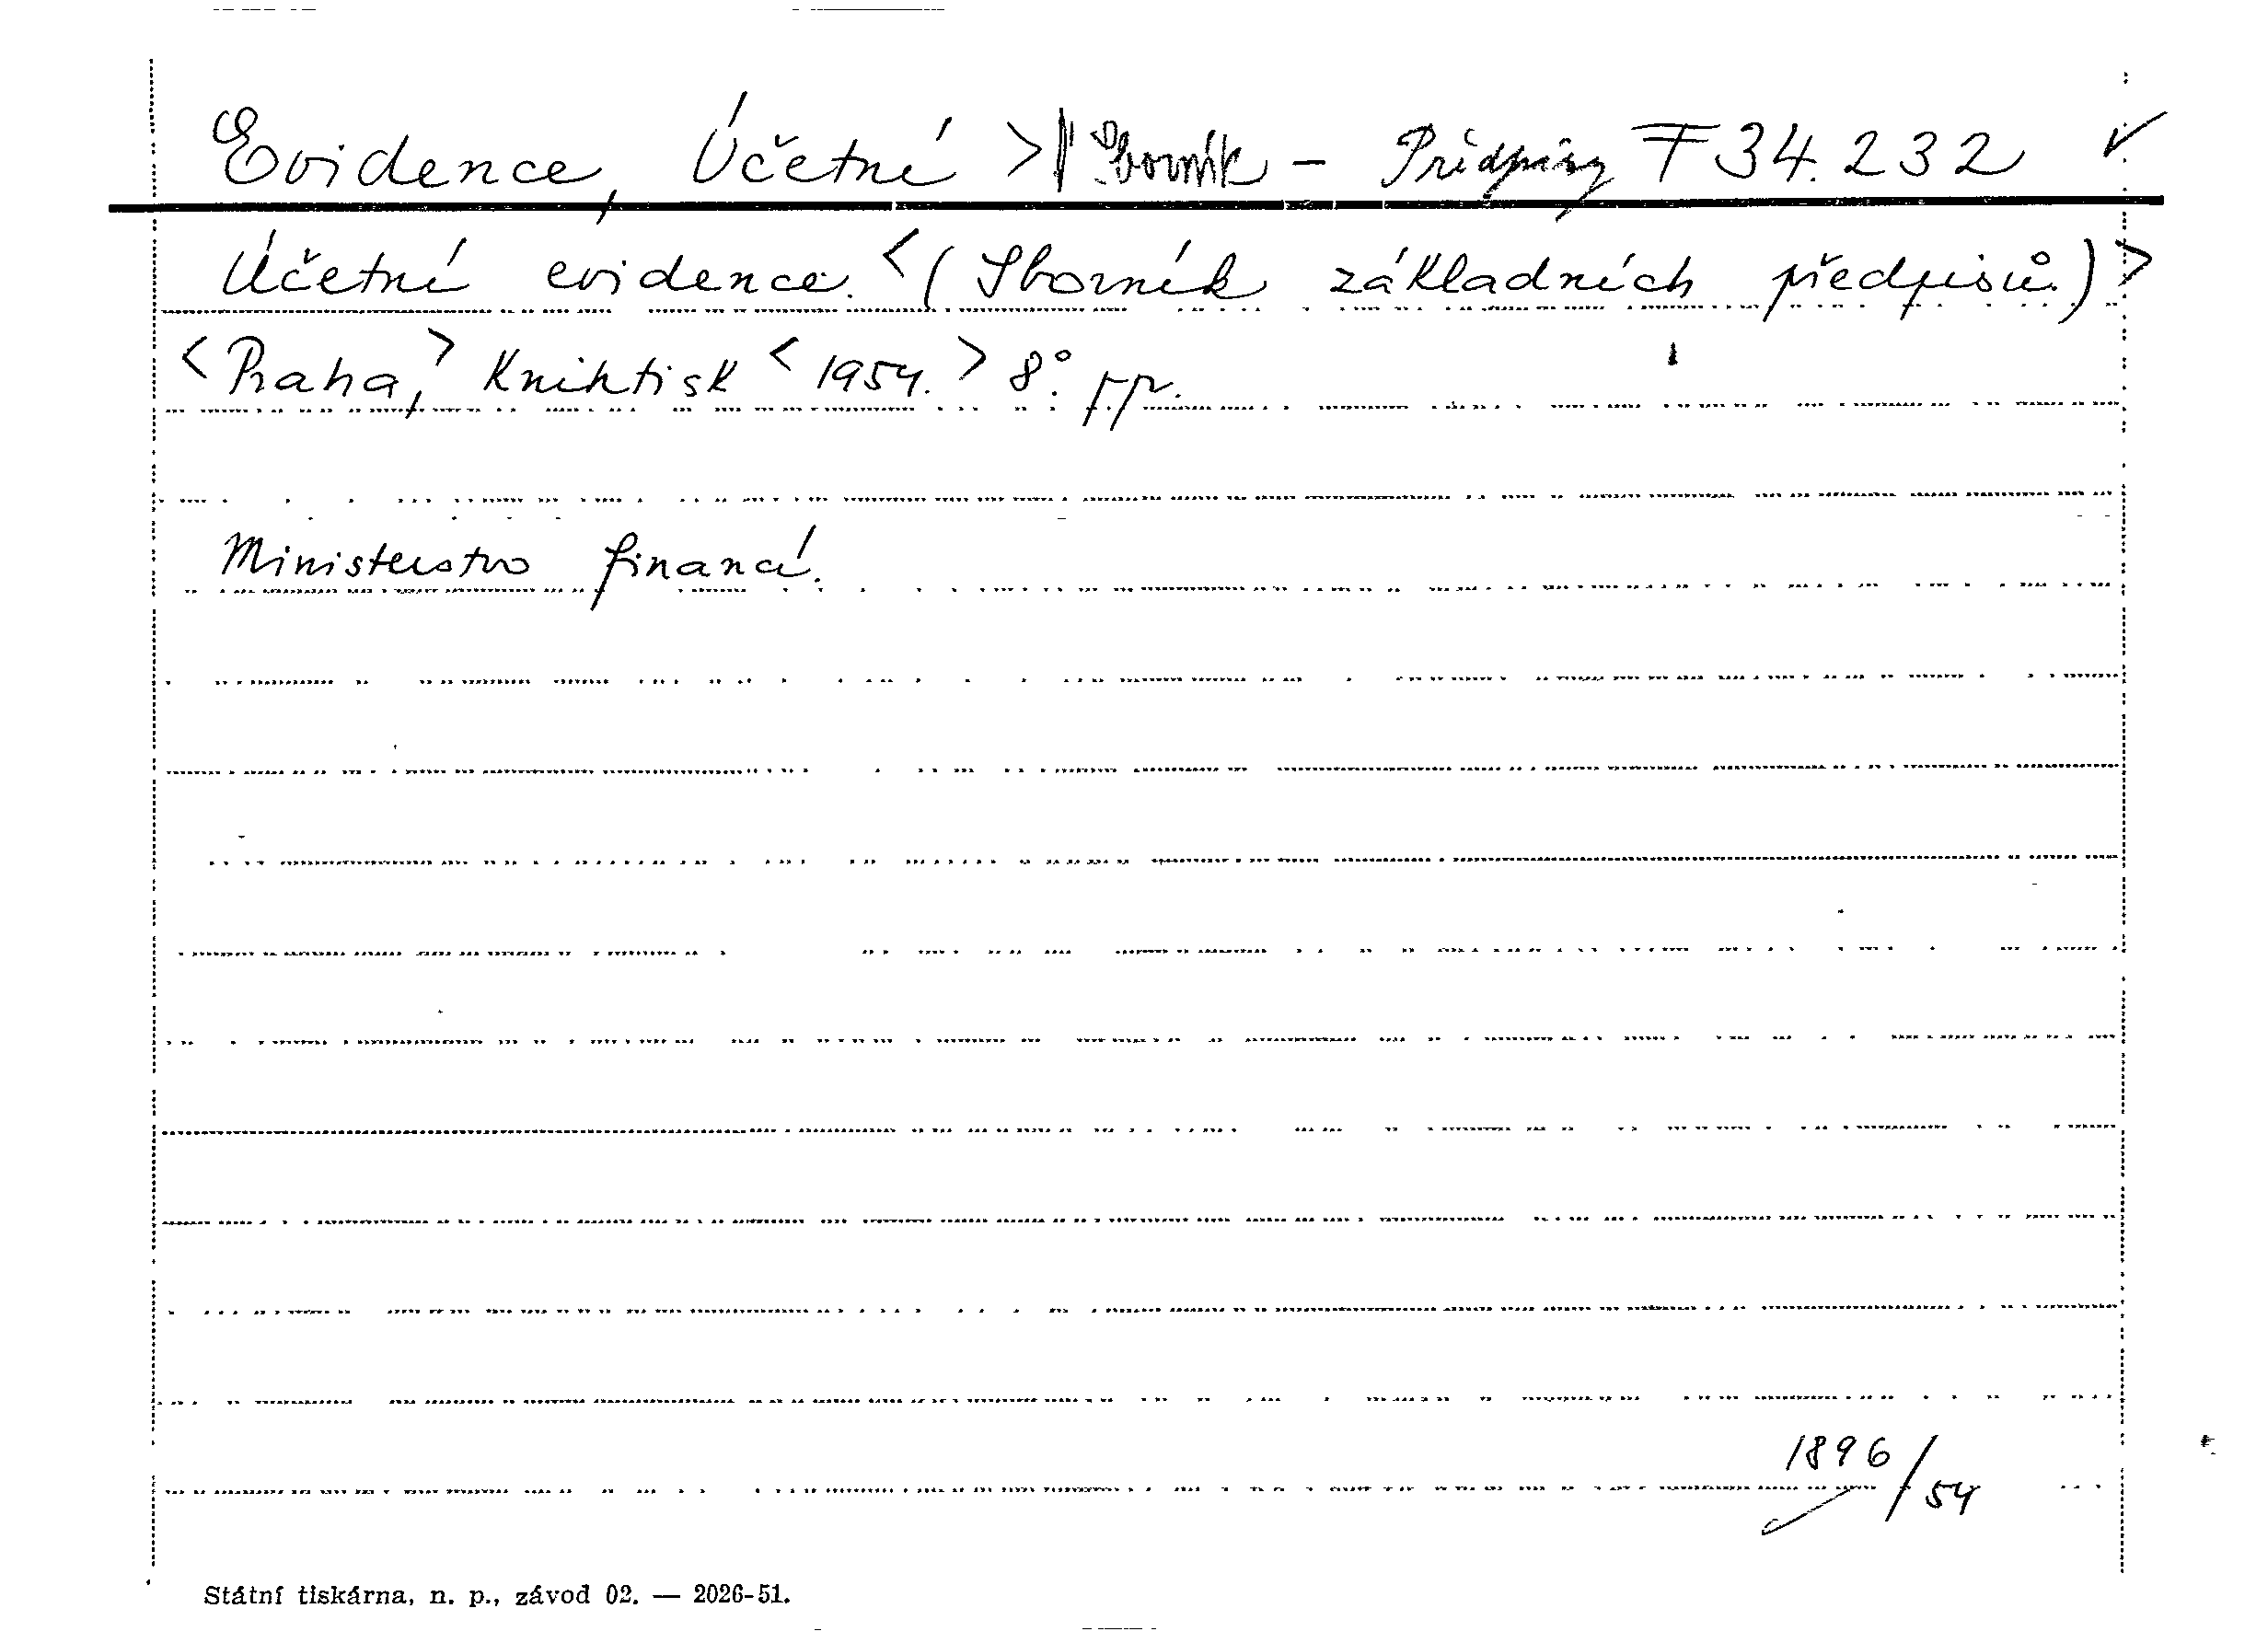 Evidence, Účetní > Sborník - Předpisy F 34.232 ✓
Účetní evidence. < (Sborník základních předpisů.) >
< Praha, > Knihtisk < 1954. > 8°.
Ministerstvo financí.
1896/54
Státní tiskárna, n. p., závod 02. — 2026-51.